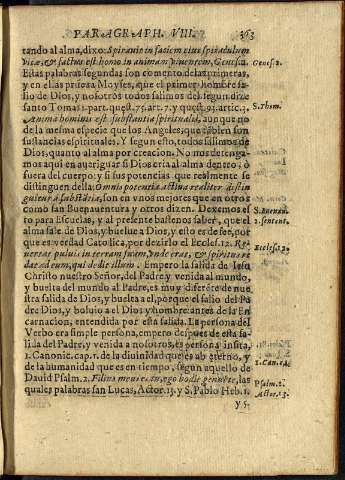 PARAGRAPH. VIII. 363
tando al alma, dixo: Spirauit in faciem eius spiraculum
vitæ, & factus est homo in animam viuentem, Genes. 2. Genes. 2.
Estas palabras segundas son comento de las primeras,
y en ellas prueua Moyses, que el primer hombre sa-
lio de Dios, y nosotros todos salimos del segun dize
santo Tomas 1. part. quæst. 75. art. 7. y quæst. 93. artic. 3. S. Thom.
Anima hominis est substantia spiritualis, aunque no
de la mesma especie que los Angeles, que tãbien son
sustancias espirituales. Y segun esto, todos salimos de
Dios, quanto al alma por creacion. No nos detenga-
mos aqui en aueriguar si Dios cria al alma dentro, ò
fuera del cuerpo: y si sus potencias que realmente se
distinguen della: Omnis potentia actiua realiter distin
guitur à substãtia, son en vnos mejores que en otros
como san Buenauentura y otros dizen. Dexemos es S. Buenau.
to para Escuelas, y al presente bastenos saber, que el 2. sentent.
alma sale de Dios, y buelue a Dios, y esto es de fee, por
que es verdad Catolica, por dezirlo el Eccles. 12. Re- Eccles. 12.
uertas puluis in terram suam, vnde erat, & spiritus re
deat ad eum, qui dedit illum. Empero la salida de Iesu
Christo nuestro Señor, del Padre y venida al mundo,
y buelta del mundo al Padre, es muy diferẽte de nue
stra salida de Dios, y buelta a el, porque el salio del Pa
dre Dios, y boluio a el Dios y hombre: antes de la En
carnacion, entendida por esta salida. La persona del
Verbo era simple persona, empero despues de esta sa-
lida del Padre, y venida a nosotros, es persona vnita,
1. Canonic. cap. 1. de la diuinidad que es ab eterno, y 1. Can. c. 1.
de la humanidad que es en tiempo, segun aquello de
Dauid Psalm. 2. Filius meus es tu, ego hodie genui te, las Psalm. 2.
quales palabras san Lucas, Actor. 13. y S. Pablo Heb. 1. Actor. 13.
y 5.